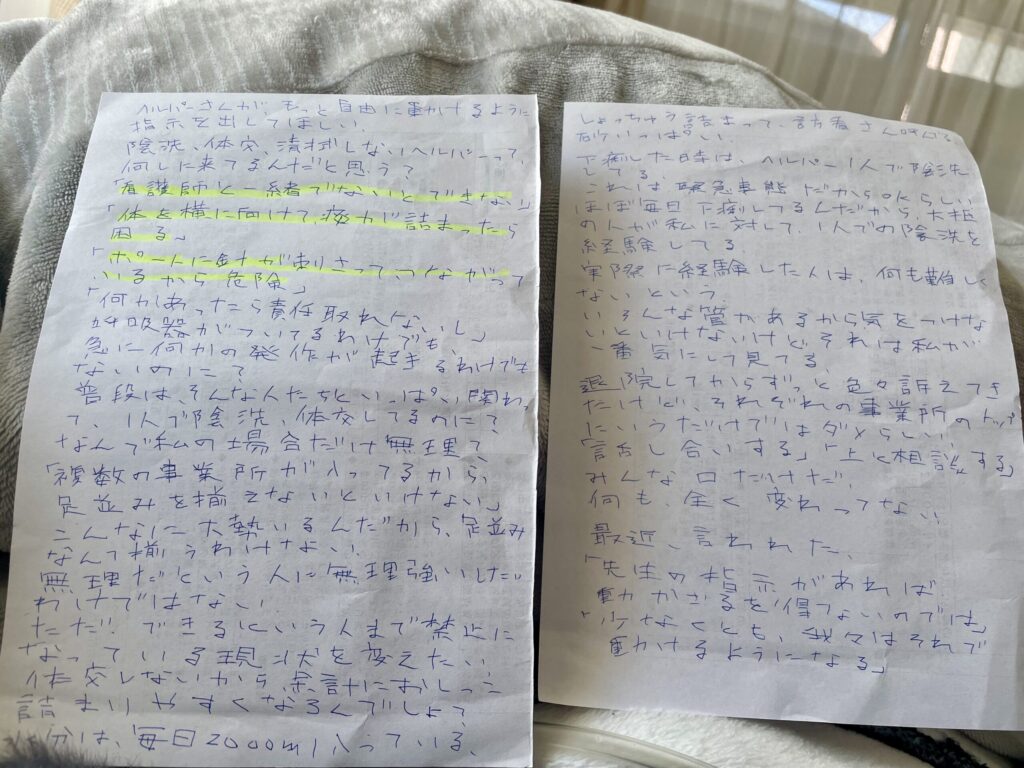 ヘルパーさんが もっと自由に動かけるように
指示を出してほしい。
陰洗、体交、清拭しないヘルパーって、
何しに来てるんだと思う?
「看護師と一緒でないとできない」
「体を横に向けて、痰が詰まったら
困る」
「ポートにあながあさって、つながって
いるから危険」
「何かあったら責任取れないし」
呼吸器がついてるわけでも、
急に何かの発作が起きるわけでも
ないのに?
普段は、そんな人たちといっぱい関わっ
て、1人で陰洗、体交してるのに?
なんで私の場合だけ無理?
「複数の事業所が入ってるから、
足並みを揃えないといけない」
こんなに大勢いるんだから、足並み
なんて揃うわけない。
無理だという人に無理強いしたい
わけではない。
ただ!できるという人まで禁止に
なっている現状を変えたい。
体交しないから、余計におしっこ
詰まりやすくなるんでしょ?
水分は、毎日2000ml入っている、
しょっちゅう詰まって、訪看さん呼びる
砂いっぱい。
下痢した時は、ヘルパー1人で陰洗
してる。
これは緊急事態だからOKらしい
ほぼ毎日下痢してるんだから、大抵
の人が私に対して、1人での陰洗を
経験してる
実際に経験した人は、何も難しく
ないという。
いろんな管があるから気をつけな
いといけないけど、それは私が
一番気にして見てる。
退院してからずっと色々訴えてき
たけど、それぞれの事業所のトップ
にいうだけではダメらしい
「話し合いする」「上に相談する」
みんな口だけだ。
何も、全く変わってない。
最近、言われた、
「先生の指示があれば
動かざるを得ないのでは」
「少なくとも、我々はそれで
動かけるようになる」